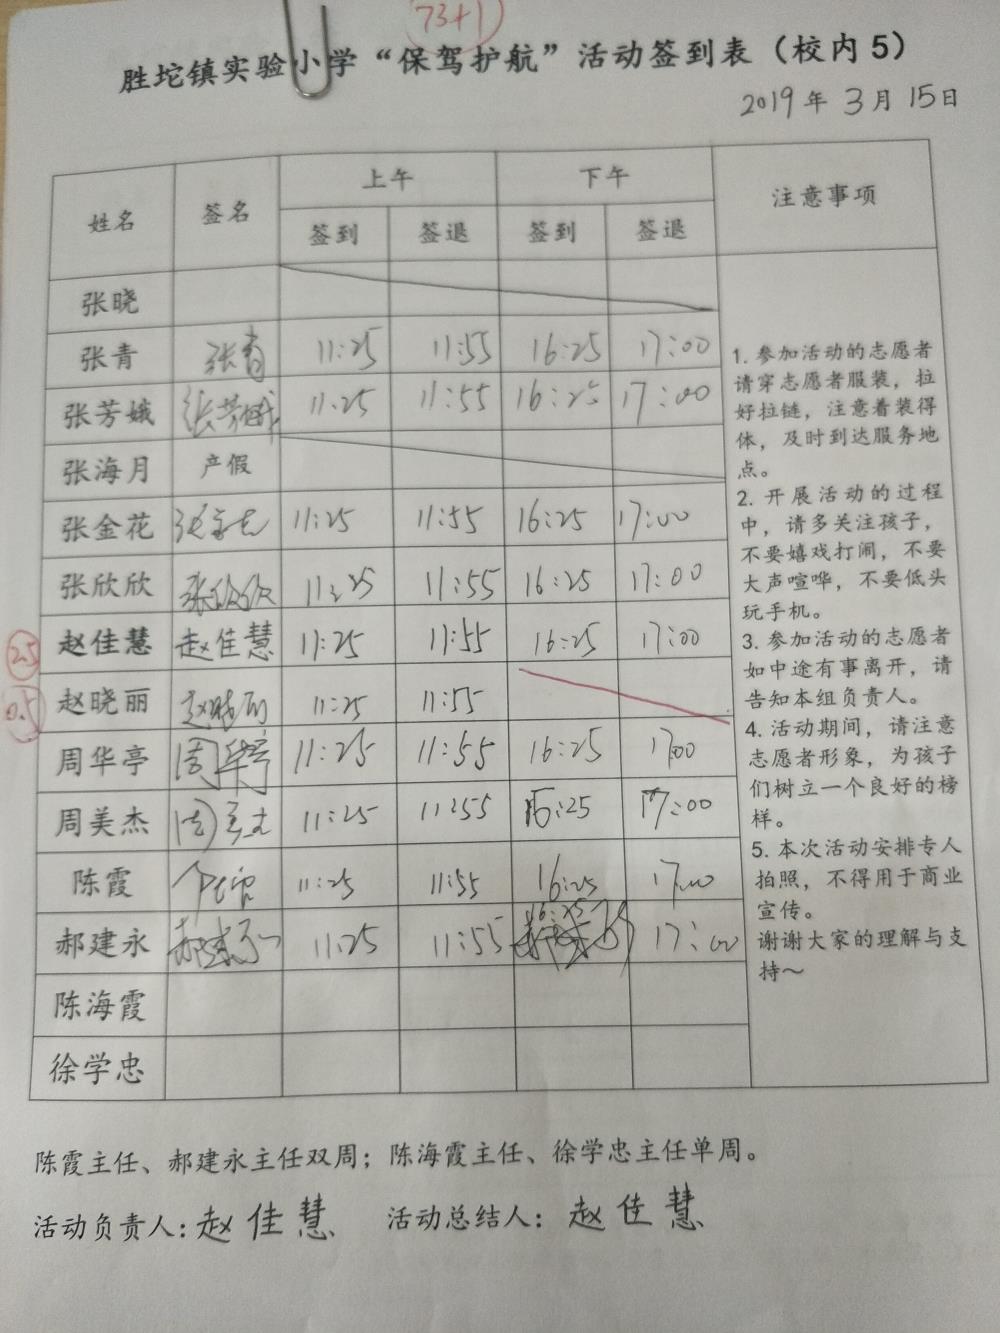 73+1
胜坨镇实验小学“保驾护航”活动签到表（校内5）
2019年3月15日
姓名 签名 上午 下午 注意事项
签到 签退 签到 签退
张晓
张青 张青 11:25 11:55 16:25 17:00
张芳娥 张芳娥 11:25 11:55 16:25 17:00
张海月 产假
张金花 张金花 11:25 11:55 16:25 17:00
张欣欣 张欣欣 11:25 11:55 16:25 17:00
2.5 赵佳慧 赵佳慧 11:25 11:55 16:25 17:00
0.5 赵晓丽 赵晓丽 11:25 11:55
周华亭 周华亭 11:25 11:55 16:25 17:00
周美杰 周美杰 11:25 11:55 16:25 17:00
陈霞 11:25 11:55 16:25 17:00
郝建永 郝建永 11:25 11:55 16:25 17:00
陈海霞
徐学忠
1. 参加活动的志愿者
请穿志愿者服装，拉
好拉链，注意着装得
体，及时到达服务地
点。
2. 开展活动的过程
中，请多关注孩子，
不要嬉戏打闹，不要
大声喧哗，不要低头
玩手机。
3. 参加活动的志愿者
如中途有事离开，请
告知本组负责人。
4. 活动期间，请注意
志愿者形象，为孩子
们树立一个良好的榜
样。
5. 本次活动安排专人
拍照，不得用于商业
宣传。
谢谢大家的理解与支
持～
陈霞主任、郝建永主任双周；陈海霞主任、徐学忠主任单周。
活动负责人：赵佳慧 活动总结人：赵佳慧